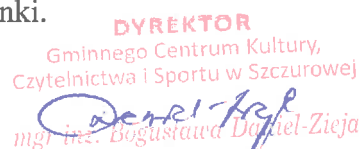 nki.
DYREKTOR
Gminnego Centrum Kultury,
Czytelnictwa i Sportu w Szczurowej
mgr inż. Bogusława Daniel-Zieja